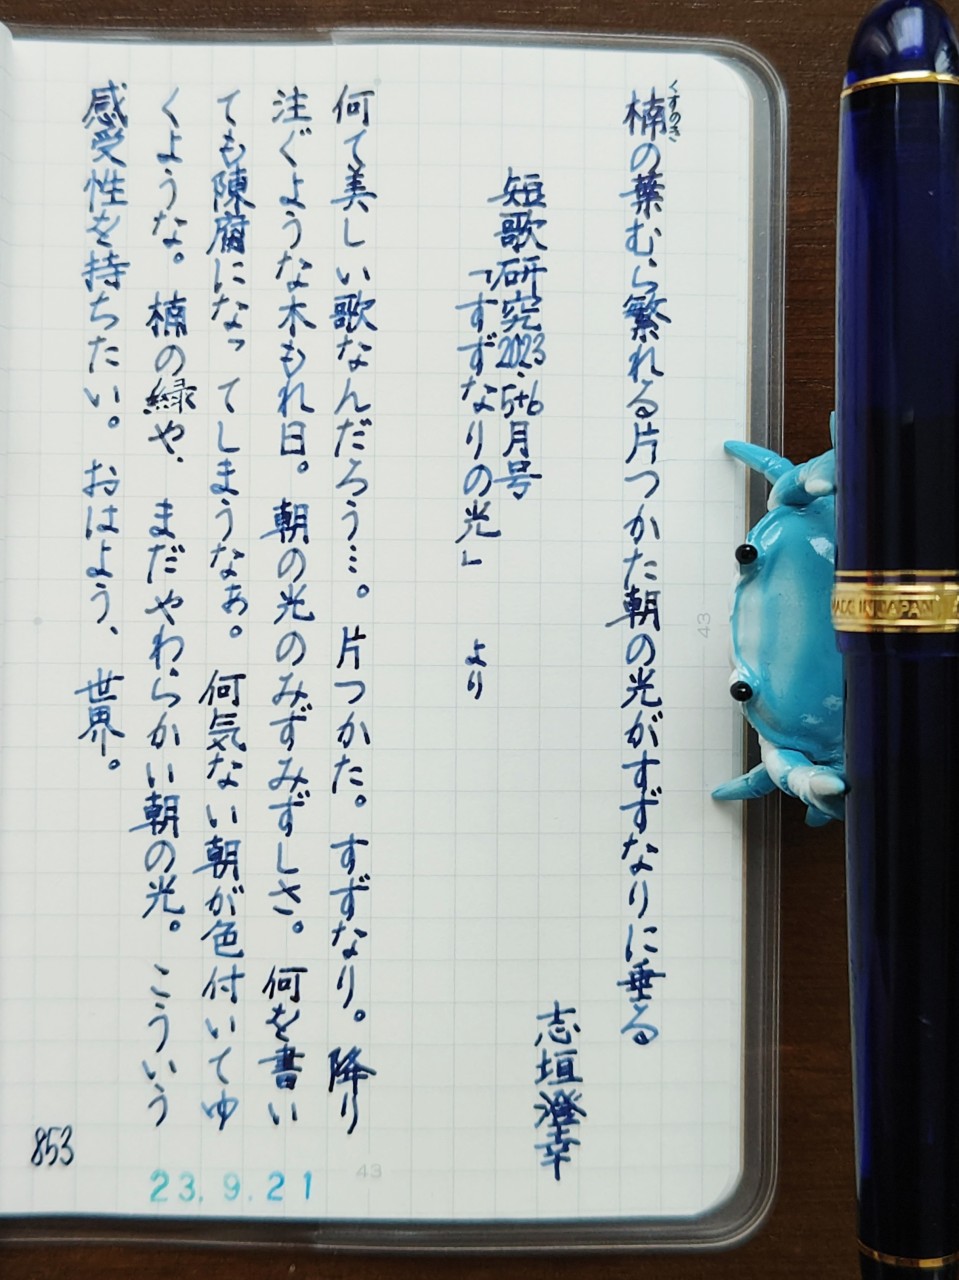 楠の葉むら繁れる片つかた朝の光がすずなりに垂る
くすのき
志垣澄幸
短歌研究2023.5+6月号
「すずなりの光」 より
何て美しい歌なんだろう…。片つかた。すずなり。降り
注ぐような木もれ日。朝の光のみずみずしさ。何を書い
ても陳腐になってしまうなぁ。何気ない朝が色付いてゆ
くような。楠の緑や、まだやわらかい朝の光。こういう
感受性を持ちたい。おはよう、世界。
853
23.9.21
43
43
MADE IN JAPAN